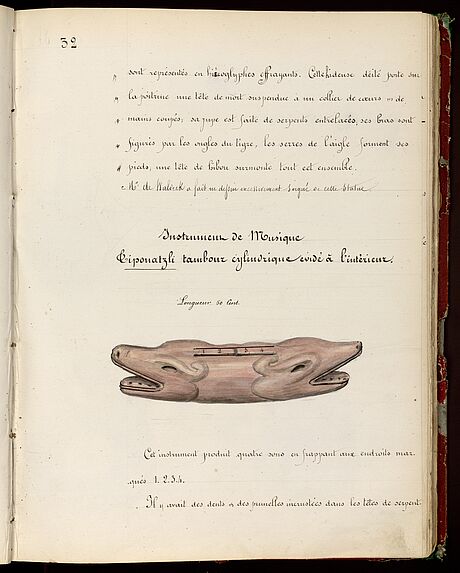 32
" sont représentés en hiéroglyphes effrayants. Cette hideuse déité porte sur
" la poitrine une tête de mort suspendue à un collier de cœurs et de
" mains coupés; sa jupe est faite de serpents entrelacés, ses bras sont
" figurés par les ongles du tigre, les serres de l'aigle forment ses
" pieds, une tête de hibou surmonte tout cet ensemble.
Mr. de Waldeck a fait un dessin excessivement soigné de cette statue.
Instrument de Musique
Tiponatzli tambour cylindrique évidé à l'intérieur.
Longueur 50 Cent.
1 2 3 4
Cet instrument produit quatre sons en frappant aux endroits mar-
qués 1. 2. 3. 4.
Il y avait des dents et des prunelles incrustées dans les têtes de serpent.